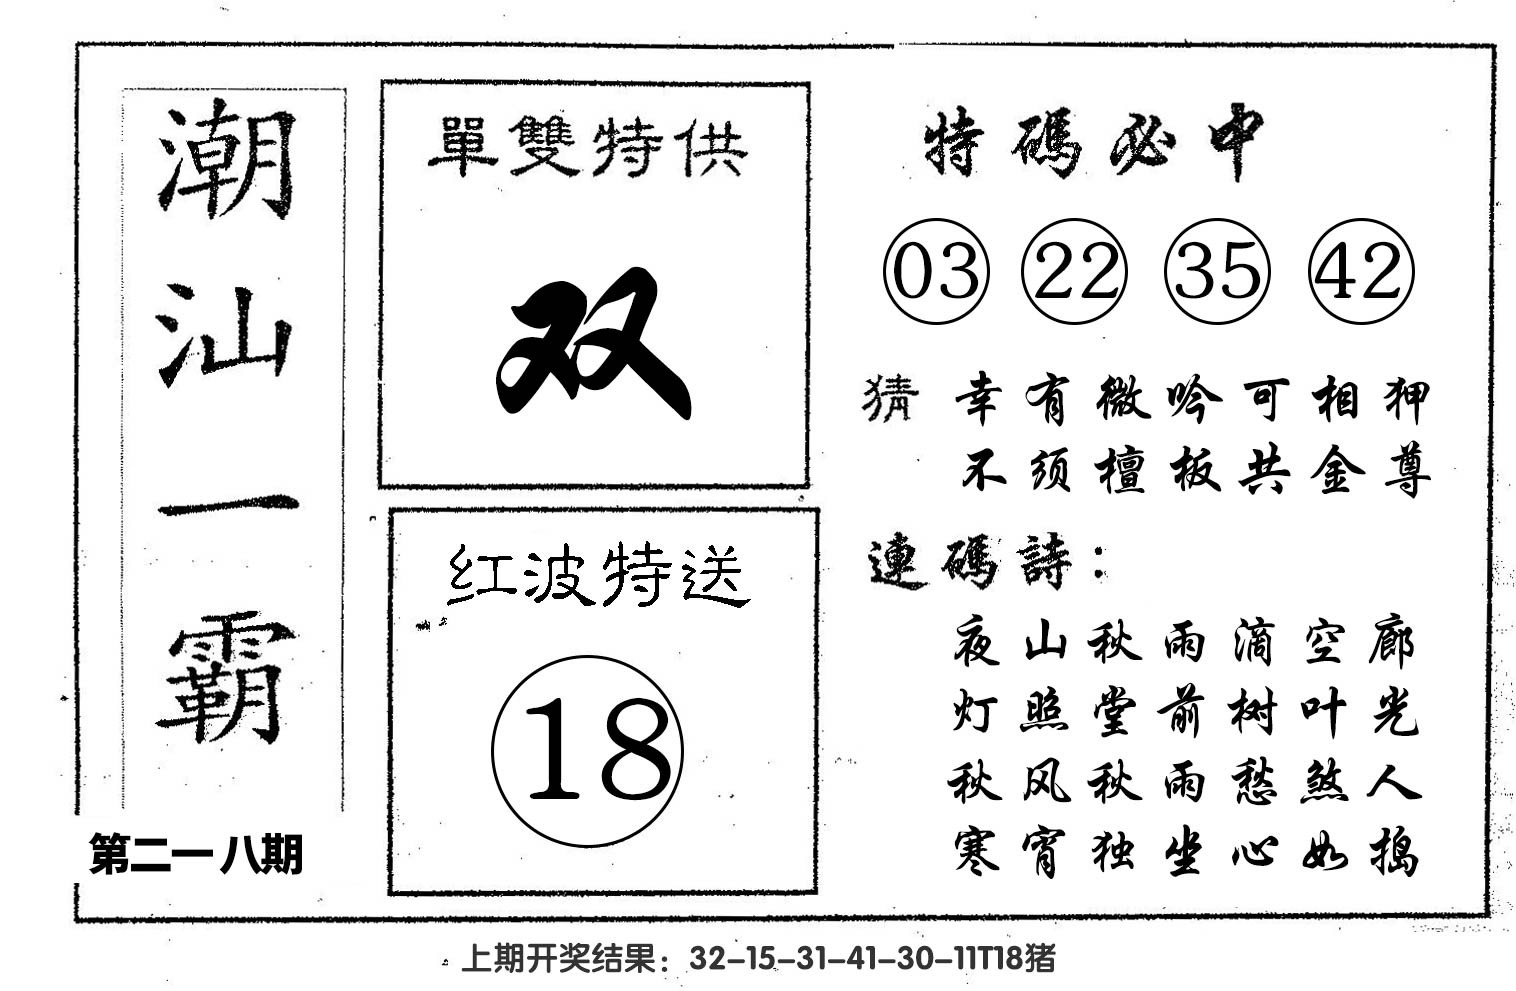 潮汕一霸
第二一八期
單雙特供
双
红波特送
18
特碼必中
03 22 35 42
猜 幸有微吟可相狎
不须檀板共金尊
連碼詩：
夜山秋雨滴空廊
灯照堂前树叶光
秋风秋雨愁煞人
寒宵独坐心如捣
上期开奖结果：32-15-31-41-30-11T18猪